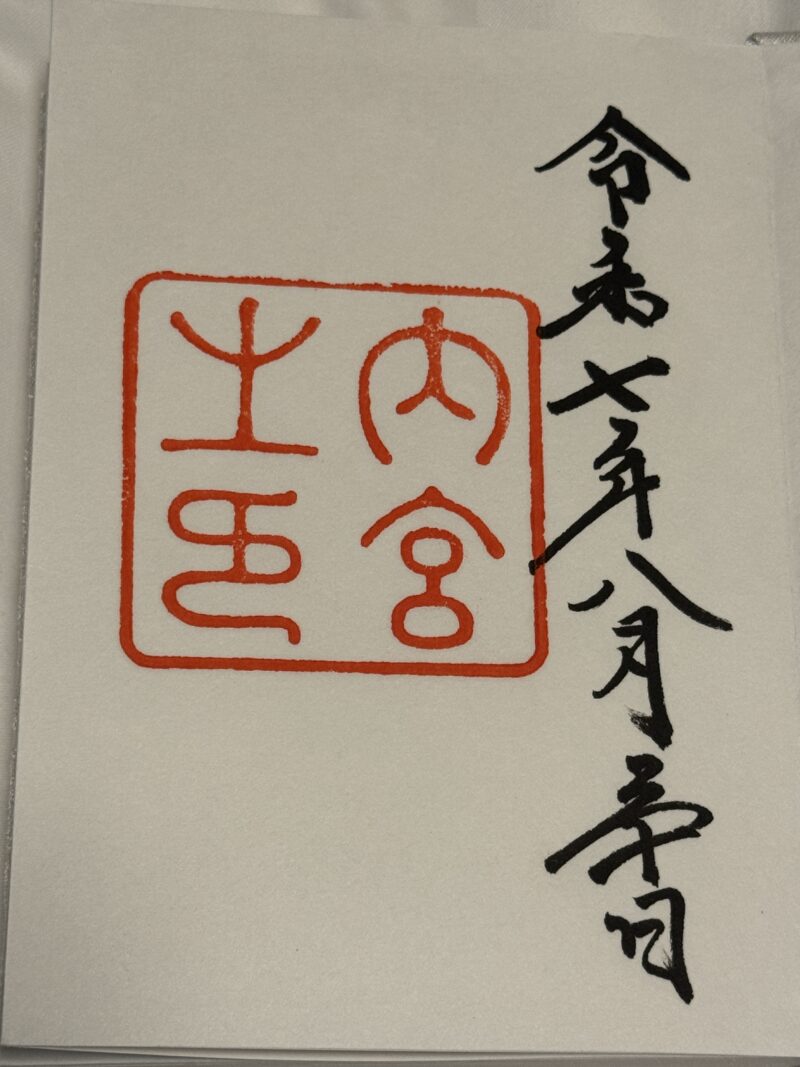 令和七年八月 日
内宮
之印